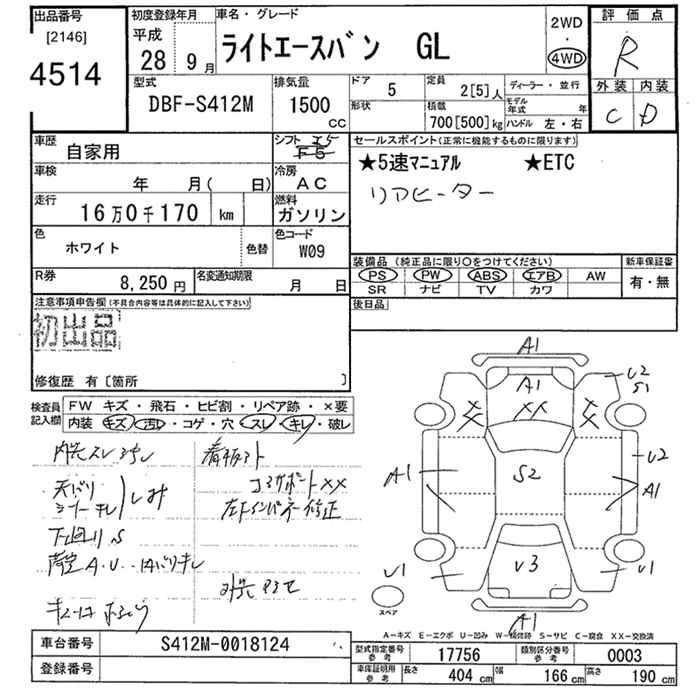 出品番号
[2146]
4514
初度登録年月
平成
28 9月
車名・グレード
ライトエースバン GL
2WD
・
4WD
評価点
R
外装 内装
C D
型式
DBF-S412M
排気量
1500
CC
ドア 5
定員 2[5]人
ディーラー・並行
形状
積載 700[500]kg
モデル年式 年
ハンドル 左・右
車歴
自家用
シフト I5
F5
セールスポイント(正常に機能するものに限ります)
★5速マニュアル ★ETC
リアヒーター
車検
年 月( 日)
冷房
AC
走行
16万0千170 km
燃料
ガソリン
色
ホワイト
色替
色コード
W09
装備品(純正品に限り○をつけてください)
PS PW ABS エアB AW
SR ナビ TV カワ
新車保証書
有・無
R券
8,250円
名変通知期限
月 日
後日品
注意事項申告欄(不具合内容等は具体的に記入して下さい)
初出品
修復歴 有〔箇所 〕
検査員記入欄
FW キズ・飛石・ヒビ割・リペア跡・×要
内装 キズ・汚・コゲ・穴・スレ・キレ・破レ
内外スレ
天バリ
しみ
下回りS
A.U.
コアサポートXX
左インパネ修正
A1
A1
XX
XX
XX
U2
S1
A1
S2
U2
A1
U1
U3
U1
A1
スペア
A-キズ E-エクボ U-凹み W-補修跡 S-サビ C-腐食 XX-交換済
車台番号
S412M-0018124
登録番号
型式指定番号
参考
17756
類別区分番号
参考
0003
車庫証明用
参考
長さ 404 cm
幅 166 cm
高さ 190 cm